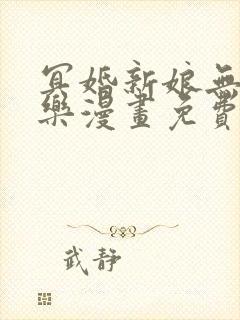 冥婚新娘無
樂漫畫免費
武靜